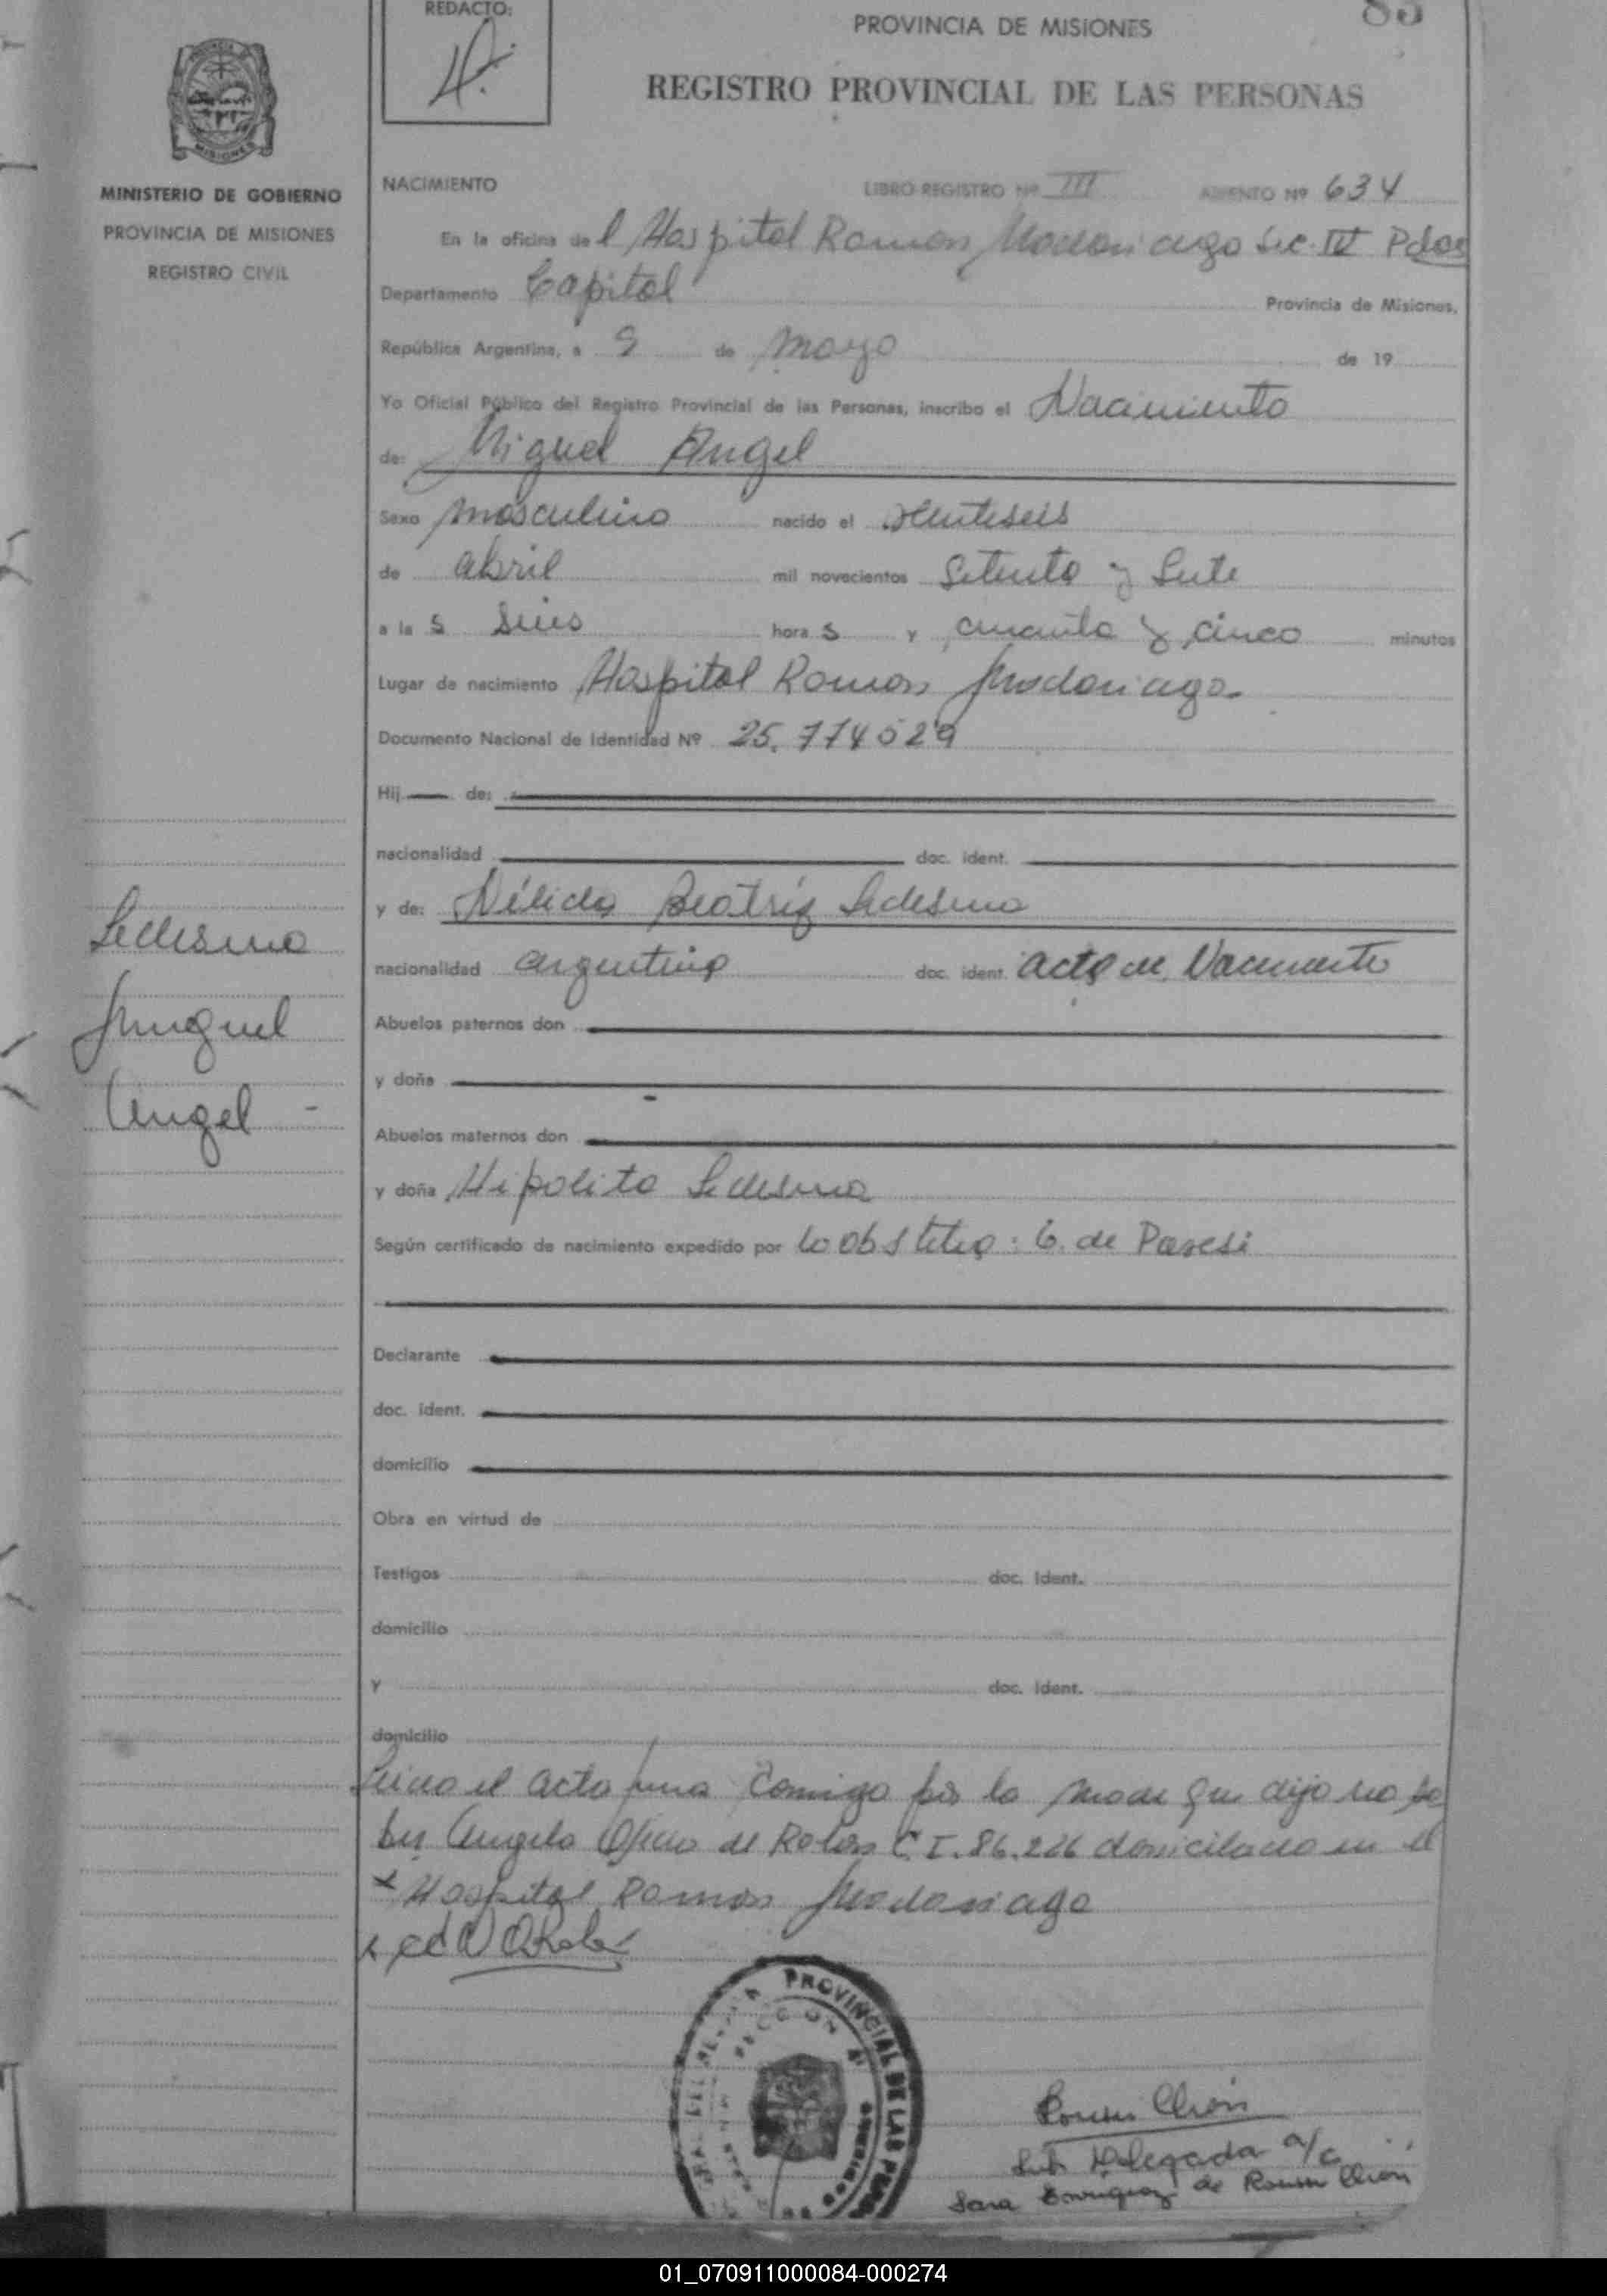 REDACTO:
PROVINCIA DE MISIONES
85
REGISTRO PROVINCIAL DE LAS PERSONAS
MISIONES
MINISTERIO DE GOBIERNO
PROVINCIA DE MISIONES
REGISTRO CIVIL
NACIMIENTO LIBRO REGISTRO Nº III ASIENTO Nº 634
En la oficina del Hospital Ramon Madariaga Sec. IV Pdas
Departamento Capital Provincia de Misiones,
República Argentina, a 9 de Mayo de 19
Yo Oficial Público del Registro Provincial de las Personas, inscribo el Nacimiento
de: Miguel Angel
Sexo masculino nacido el veintiseis
de abril mil novecientos Setenta y Siete
a las Seis horas y cuarenta y cinco minutos
Lugar de nacimiento Hospital Ramon Madariaga
Documento Nacional de Identidad Nº 25.774529
Hij de:
nacionalidad doc. ident.
y de: Nélida Beatriz Ledesma
nacionalidad argentina doc. ident. acta de Nacimiento
Ledesma
Miguel
Angel -
Abuelos paternos don
y doña
Abuelos maternos don
y doña Hipolita Ledesma
Según certificado de nacimiento expedido por la obstetra: G. de Paresi
Declarante
doc. ident.
domicilio
Obra en virtud de
Testigos doc. ident.
domicilio
y doc. ident.
domicilio
Leida el acta firma Comigo por la Madre que dijo no sa
ber Angela de Rolon C.I. 86.226 domiciliada en el
Hospital Ramon Madariaga
PROVINCIAL DE LAS
SECCION 4ª
Sub Delegada a/c
Sara Enriquez de
01_070911000084-000274